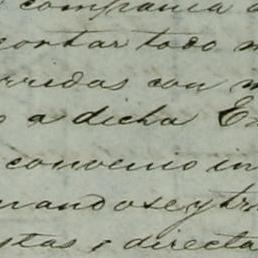 compania
contar todo
rridas con
a dicha E
convenio in
nandose y tr
stas o directa